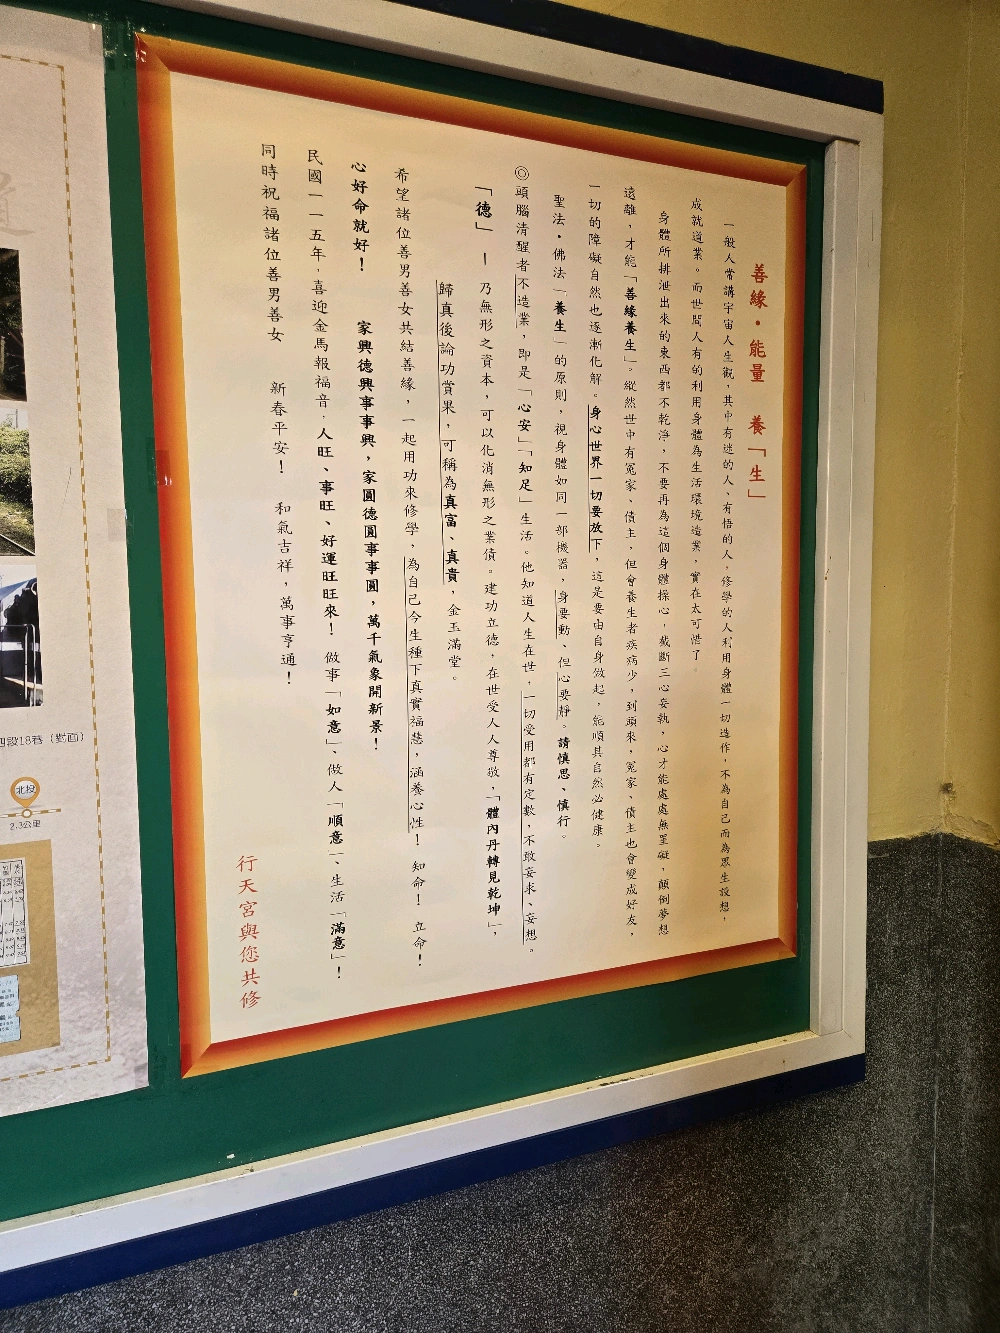 善緣・能量　養「生」
一般人常講宇宙人生觀，其中有迷的人、有悟的人，修學的人利用身體一切造作，不為自己而為眾生設想，
成就道業。而世間人有的利用身體為生活環境造業，實在太可惜了。
身體所排泄出來的東西都不乾淨，不要再為這個身體操心，截斷三心妄執，心才能處處無罣礙，顛倒夢想
遠離，才能「善緣養生」。縱然世中有冤家、債主，但會養生者疾病少，到頭來，冤家、債主也會變成好友，
一切的障礙自然也逐漸化解。身心世界一切要放下，這是要由自身做起，能順其自然必健康。
聖法・佛法「養生」的原則，視身體如同一部機器，身要動、但心要靜。請慎思、慎行。
◎頭腦清醒者不造業，即是「心安」「知足」生活。他知道人生在世，一切受用都有定數，不敢妄求、妄想。
「德」—　乃無形之資本，可以化消無形之業債。建功立德，在世受人人尊敬，「體內丹轉見乾坤」，
歸真後論功賞果，可稱為真富、真貴，金玉滿堂。
希望諸位善男善女共結善緣，一起用功來修學，為自己今生種下真實福慧，涵養心性！　知命！　立命！
心好命就好！　家興德興事事興，家圓德圓事事圓，萬千氣象開新景！
民國一一五年，喜迎金馬報福音，人旺、事旺、好運旺旺來！　做事「如意」、做人「順意」、生活「滿意」！
同時祝福諸位善男善女　新春平安！　和氣吉祥，萬事亨通！
行天宮與您共修
四段18巷（對面）
北投
2.3公里